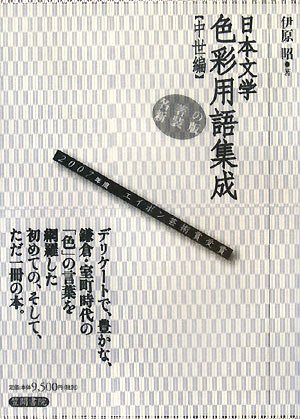 伊原 昭●著
日本文学
色彩用語集成
【中世編】
2007年度 エイボン芸術賞受賞
デリケートで、豊かな、
鎌倉・室町時代の
「色」の言葉を
網羅した
初めての、そして、
ただ一冊の本。
笠間書院
定価:本体9,500円(税別)